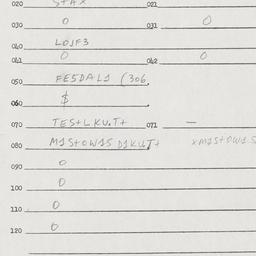 020 STAX 021
030 0 031 0
040 LOJF3
041 0 042 0
050 FE5DAL1 (306
060 $
070 TEStLKU.T+ 071 —
080 M1StOW15 D1KUT+ xM1StOW1S
090 0
100 0
110 0
120 0